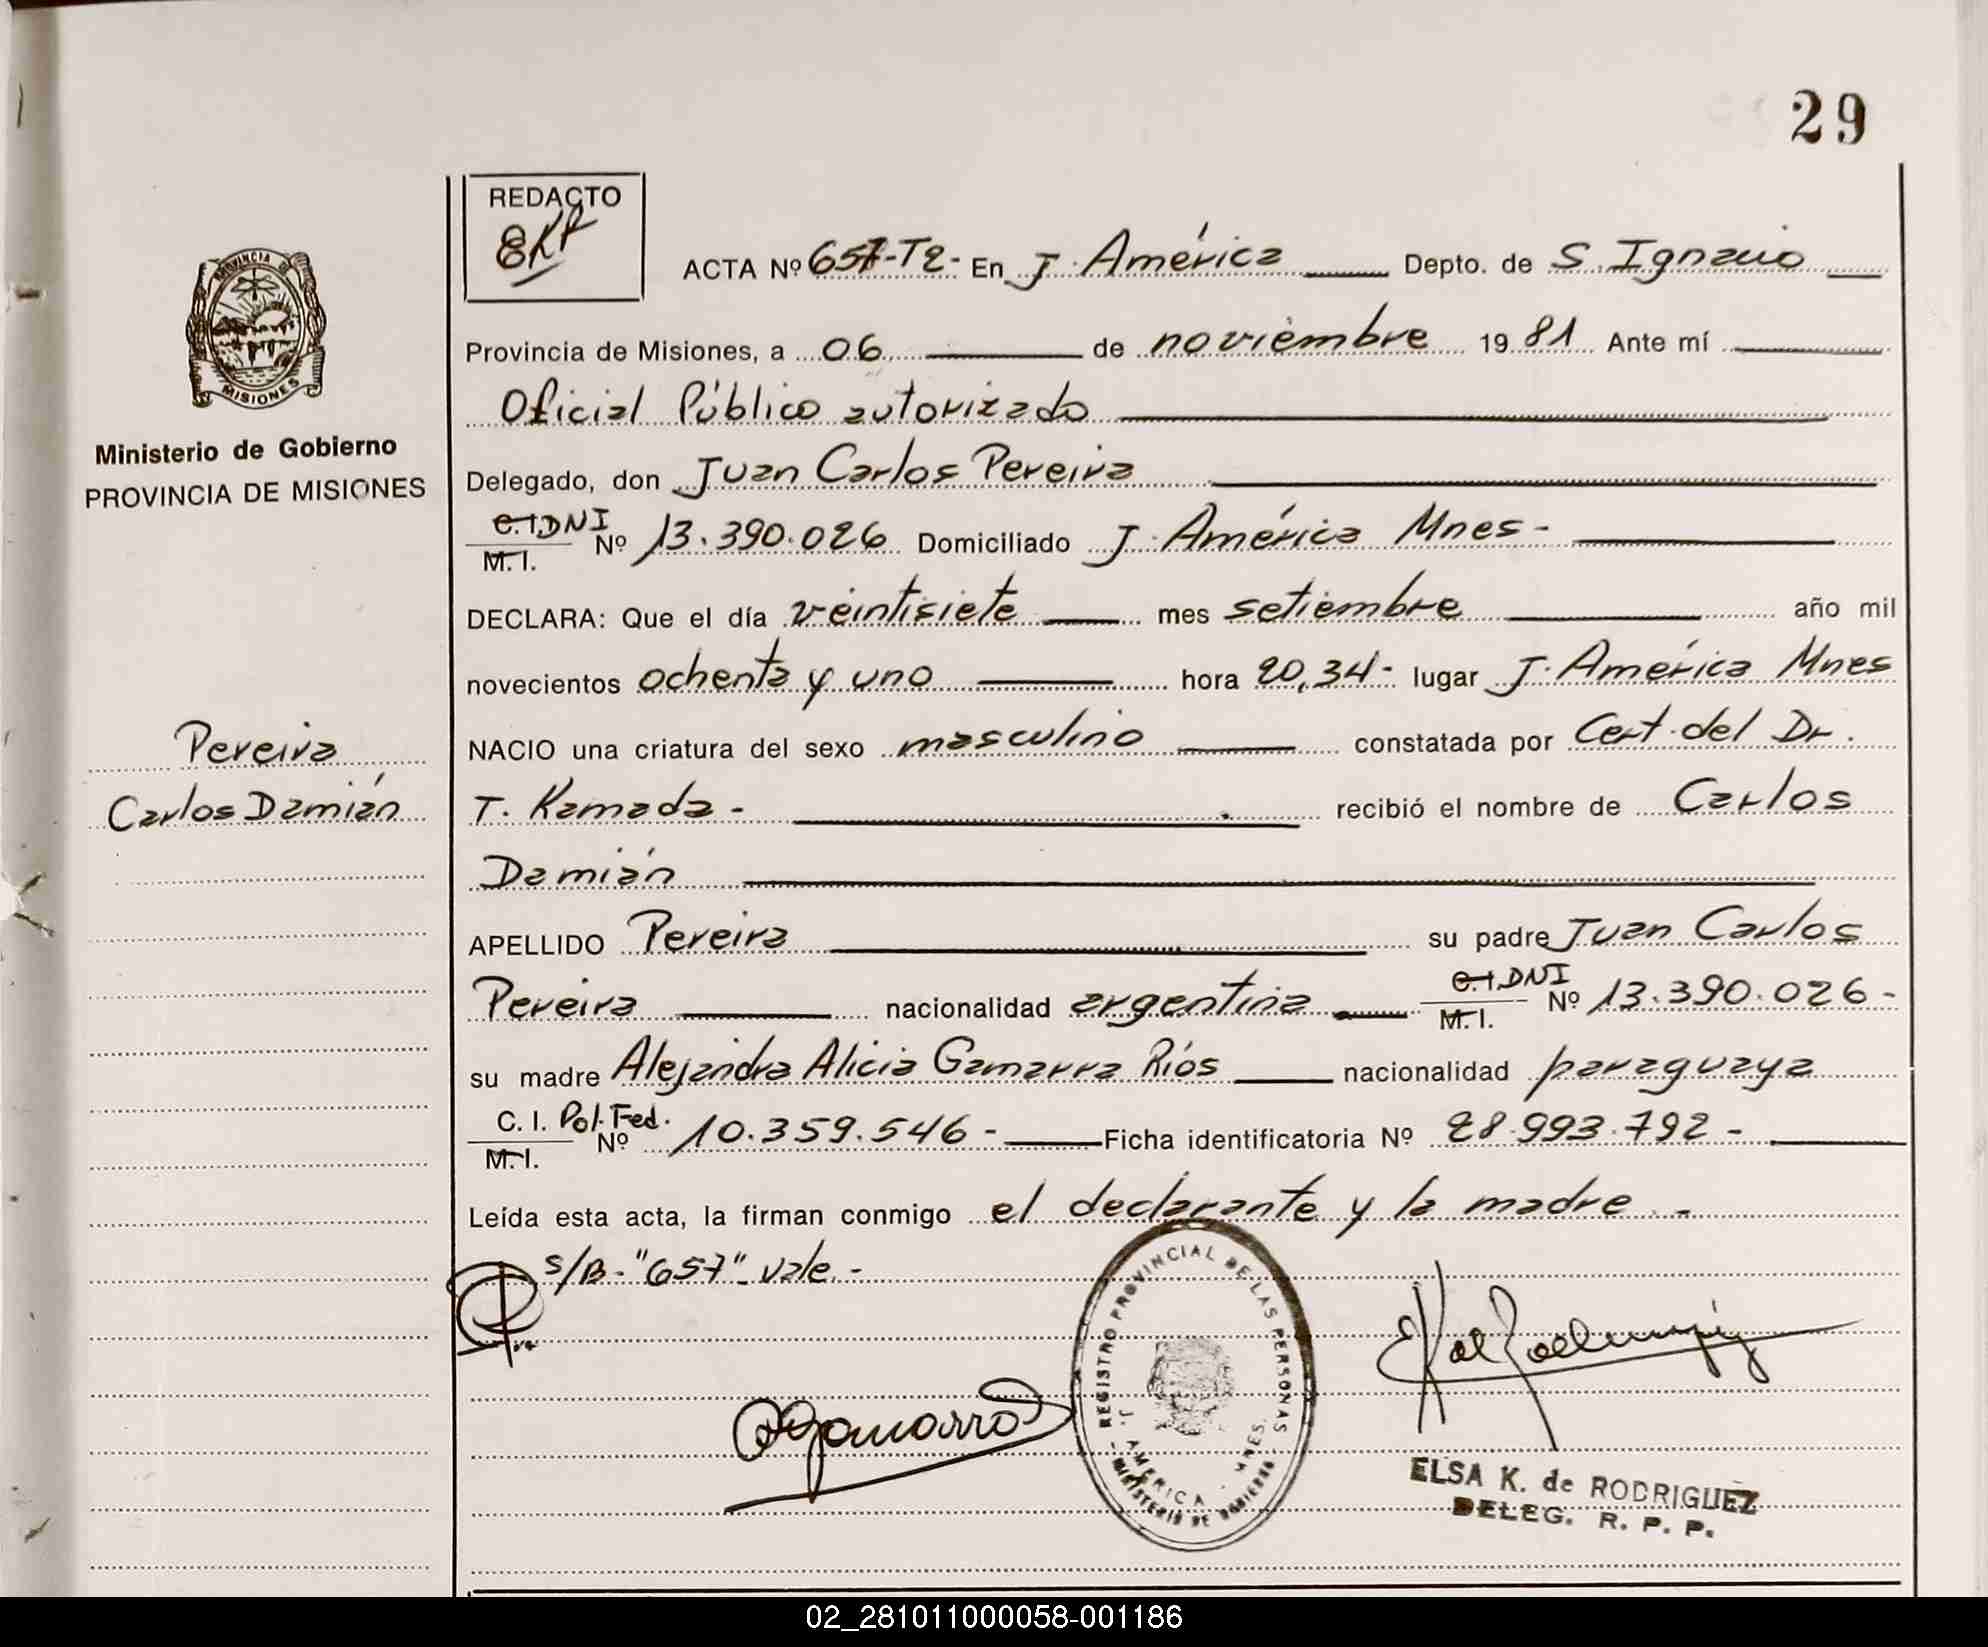 29
REDACTO
EKR
ACTA Nº 657-T2- En J. América Depto. de S. Ignacio
Provincia de Misiones, a 06 de noviembre 19 81 Ante mí
Oficial Público autorizado
Delegado, don Juan Carlos Pereira
C.I. DNI
M. I. Nº 13.390.026 Domiciliado J. América Mnes-
DECLARA: Que el día veintisiete mes setiembre año mil
novecientos ochenta y uno hora 20,34- lugar J. América Mnes
NACIO una criatura del sexo masculino constatada por Cert. del Dr.
T. Kamada - recibió el nombre de Carlos
Damián
APELLIDO Pereira su padre Juan Carlos
Pereira nacionalidad argentina C.I. DNI M. I. Nº 13.390.026-
su madre Alejandra Alicia Gamarra Ríos nacionalidad paraguaya
C. I. Pol. Fed.
M. I. Nº 10.359.546- Ficha identificatoria Nº 28.993.792-
Leída esta acta, la firman conmigo el declarante y la madre.-
s/B- "657" vale.-
AGamarra
REGISTRO PROVINCIAL DE LAS PERSONAS
J. AMERICA - MNES.
MINISTERIO DE GOBIERNO
ELSA K. de RODRIGUEZ
DELEG. R. P. P.
PROVINCIA DE
MISIONES
Ministerio de Gobierno
PROVINCIA DE MISIONES
Pereira
Carlos Damián
02_281011000058-001186